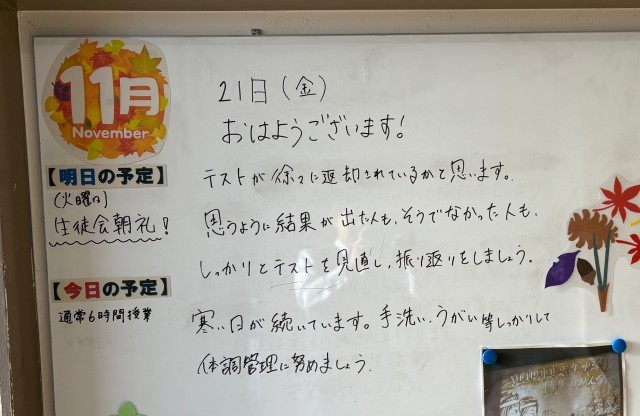 11月
November
【明日の予定】
(火曜日)
生徒会朝礼!
【今日の予定】
通常6時間授業
21日(金)
おはようございます!
テストが徐々に返却されているかと思います。
思うように結果が出た人も、そうでなかった人も、
しっかりとテストを見直し、振り返りをしましょう。
寒い日が続いています。手洗い、うがい等しっかりして
体調管理に努めましょう。